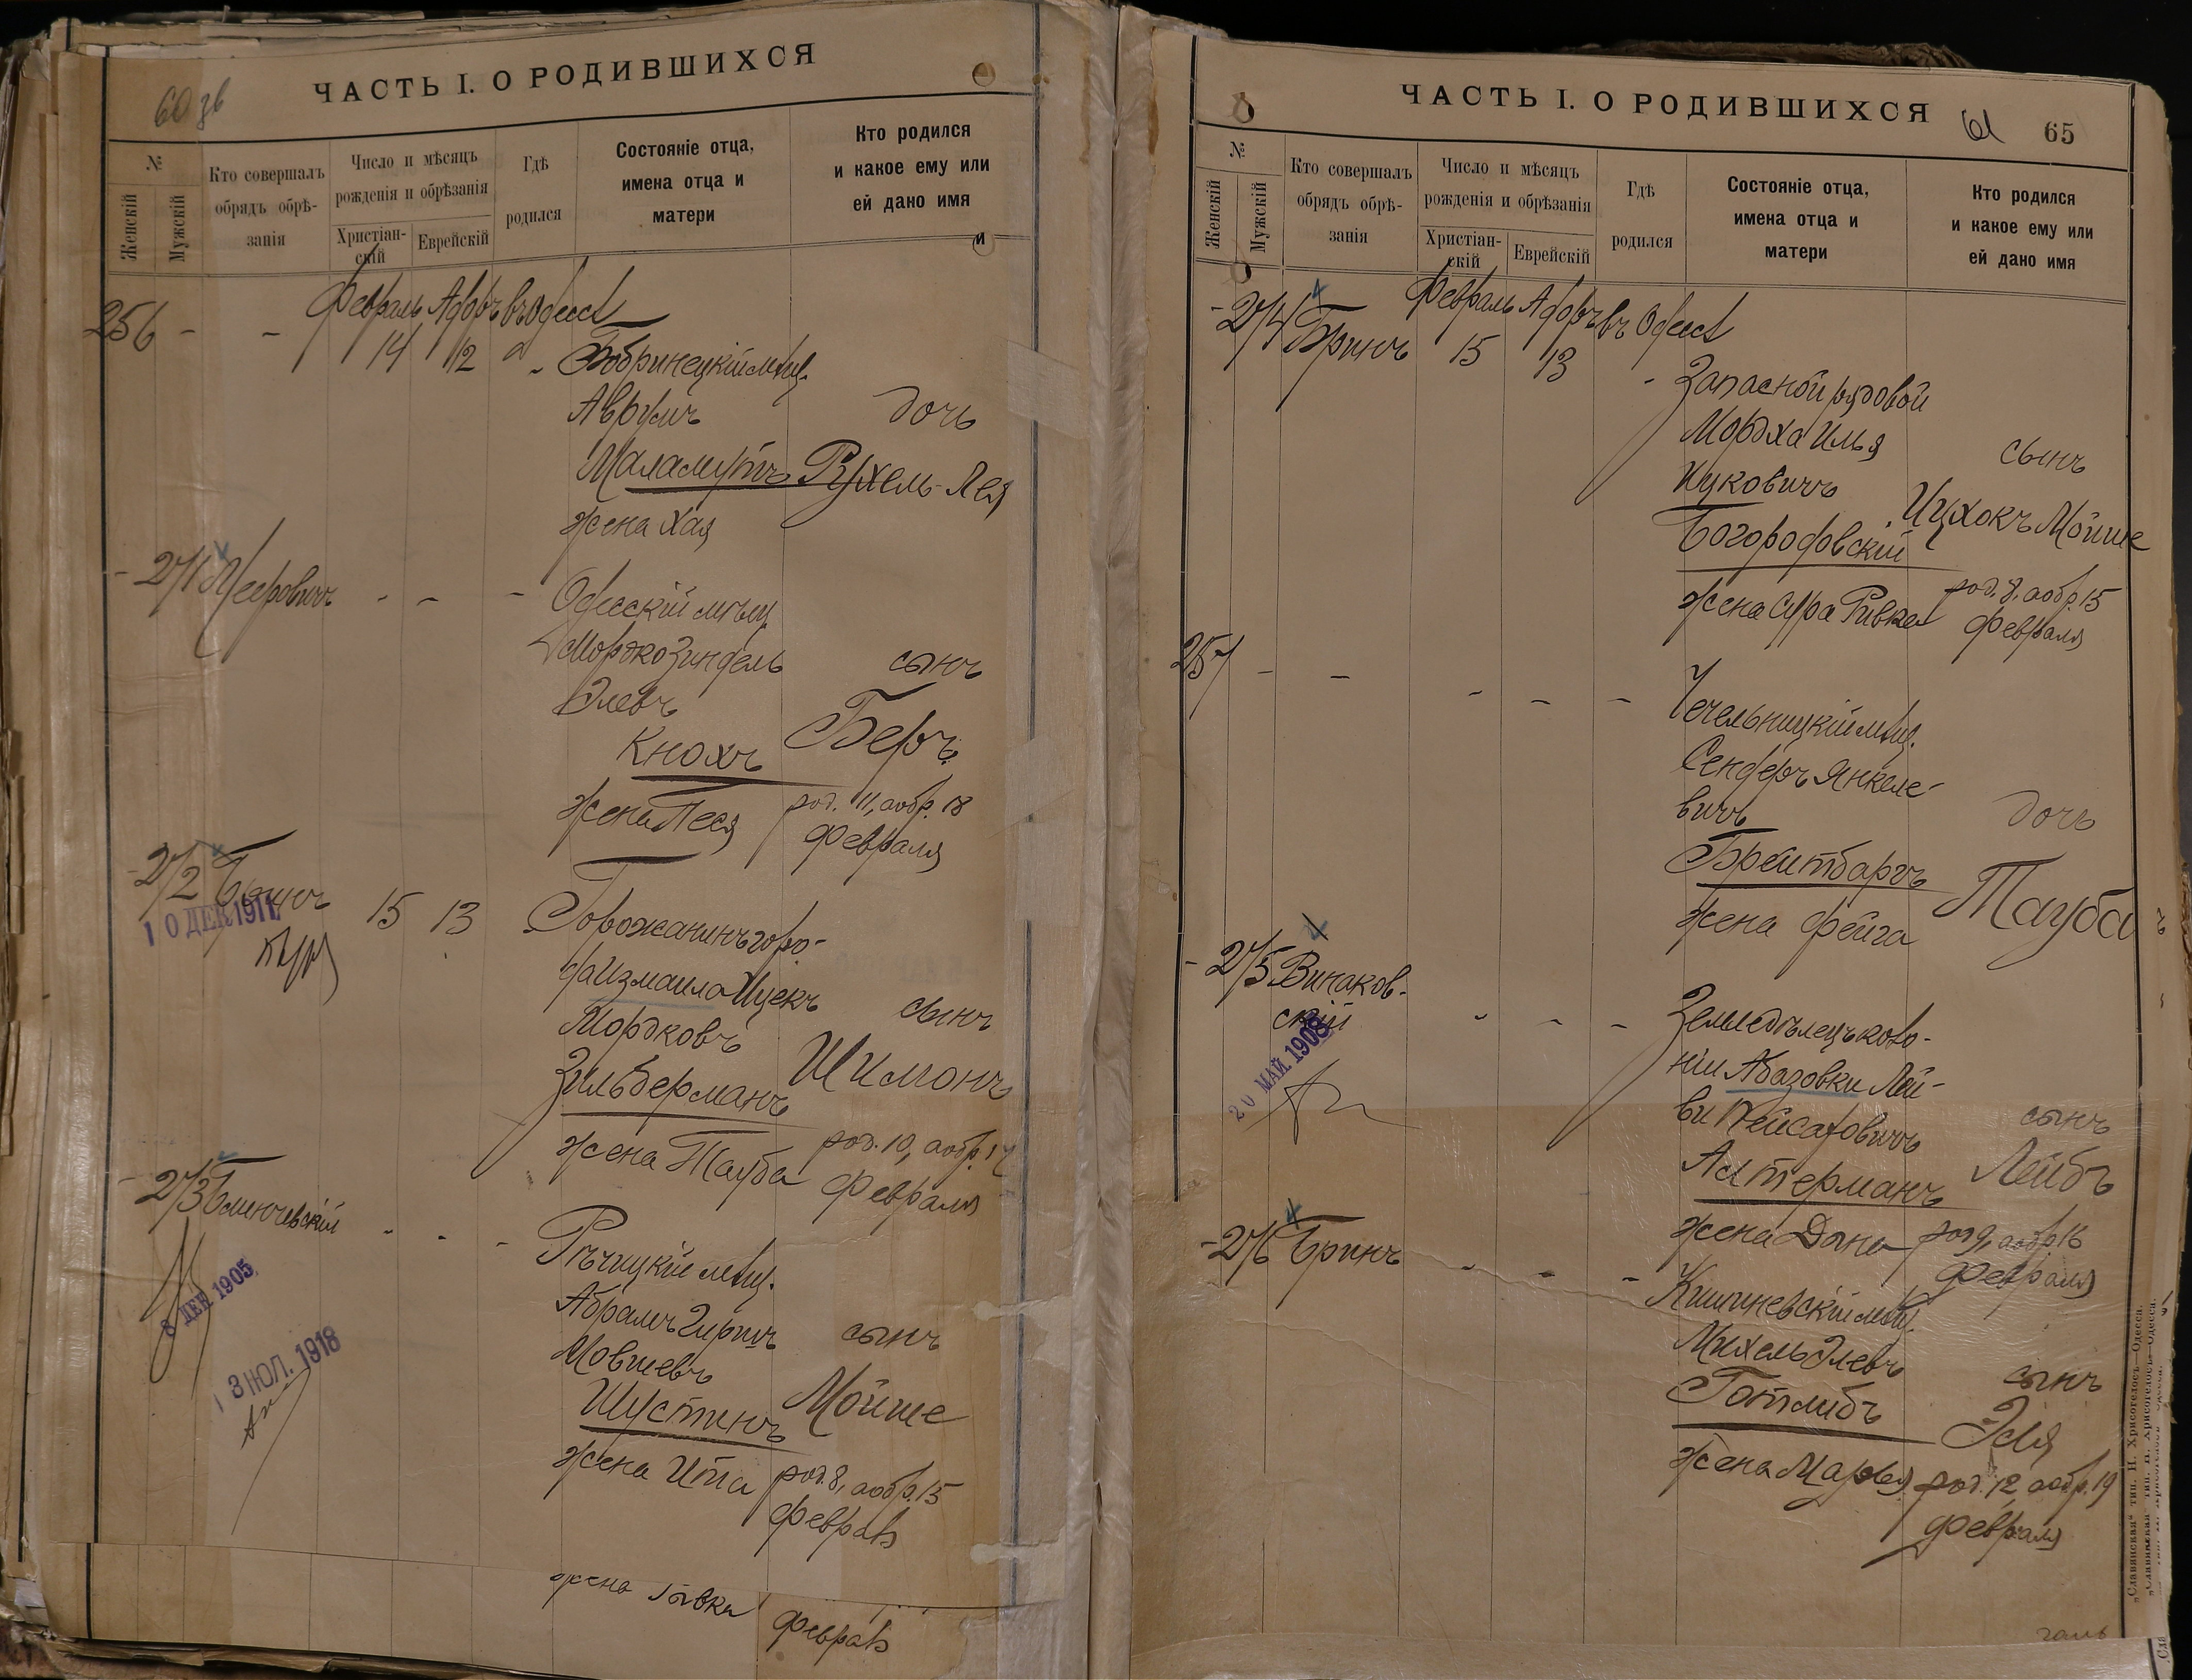 60 зв
ЧАСТЬ I. О РОДИВШИХСЯ
№
Женскій
Мужскій
Кто совершалъ
обрядъ обрѣ-
занія
Число и мѣсяцъ
рожденія и обрѣзанія
Христіан-
скій
Еврейскій
Гдѣ
родился
Состояніе отца,
имена отца и
матери
Кто родился
и какое ему или
ей дано имя
и
Февраль Адаръ въ Одессѣ
256 - - 14 12 - Бобринецкій мѣщ.
Аврумъ дочь
Маламутъ Рухель-Лея
жена Хая
- 271 - - - Одесскій мѣщ.
Мордко Зиндель сынъ
Элевъ
Кнохъ Беръ
жена Песя род. 11, а обр. 18
Февраля
- 272 15 13 Горожанинъ горо-
10 ДЕК 1911
да Измаила Ицекъ сынъ
Мордковъ
Зильберманъ Шимонъ
жена Тауба род. 10, а обр. 17
Февраля
- 273 - - - Рѣчицкій мѣщ.
8 ДЕК 1905
Абрамъ Гиршъ сынъ
Мовшевъ
13 ІЮЛ. 1918
Шустинъ Мойше
жена Ита род. 8, а обр. 15
Февраля
жена Ривка
Февраля
ЧАСТЬ I. О РОДИВШИХСЯ
61 65
№
Женскій
Мужскій
Кто совершалъ
обрядъ обрѣ-
занія
Число и мѣсяцъ
рожденія и обрѣзанія
Христіан-
скій
Еврейскій
Гдѣ
родился
Состояніе отца,
имена отца и
матери
Кто родился
и какое ему или
ей дано имя
Февраль Адаръ въ Одессѣ
- 274 Бринъ 15 13 - Запасной рядовой
Мордха Илья сынъ
Ицковичъ Ицхокъ Мойше
Богородовскій
жена Сура Ривка род. 8, а обр. 15
Февраля
257 - - - - - Чечельницкій мѣщ.
Сендеръ Янкеле-
вичъ дочь
Брейтбаргъ Тауба
жена Фейга
- 275 Винаков-
скій - - - Земледѣлецъ коло-
20 МАЙ 1908
ніи Абазовки Лей-
ви Пейсаховичъ сынъ
Астерманъ Лейбъ
жена Дана род 9, а обр 16
Февраля
- 276 Бринъ - - - Кишиневскій мѣщ.
Михель Элевъ сынъ
Готлибъ Эля
жена Марья род. 12, а обр. 19
Февраля
„Славянская“ тип. Н. Хрисогелосъ Одесса.